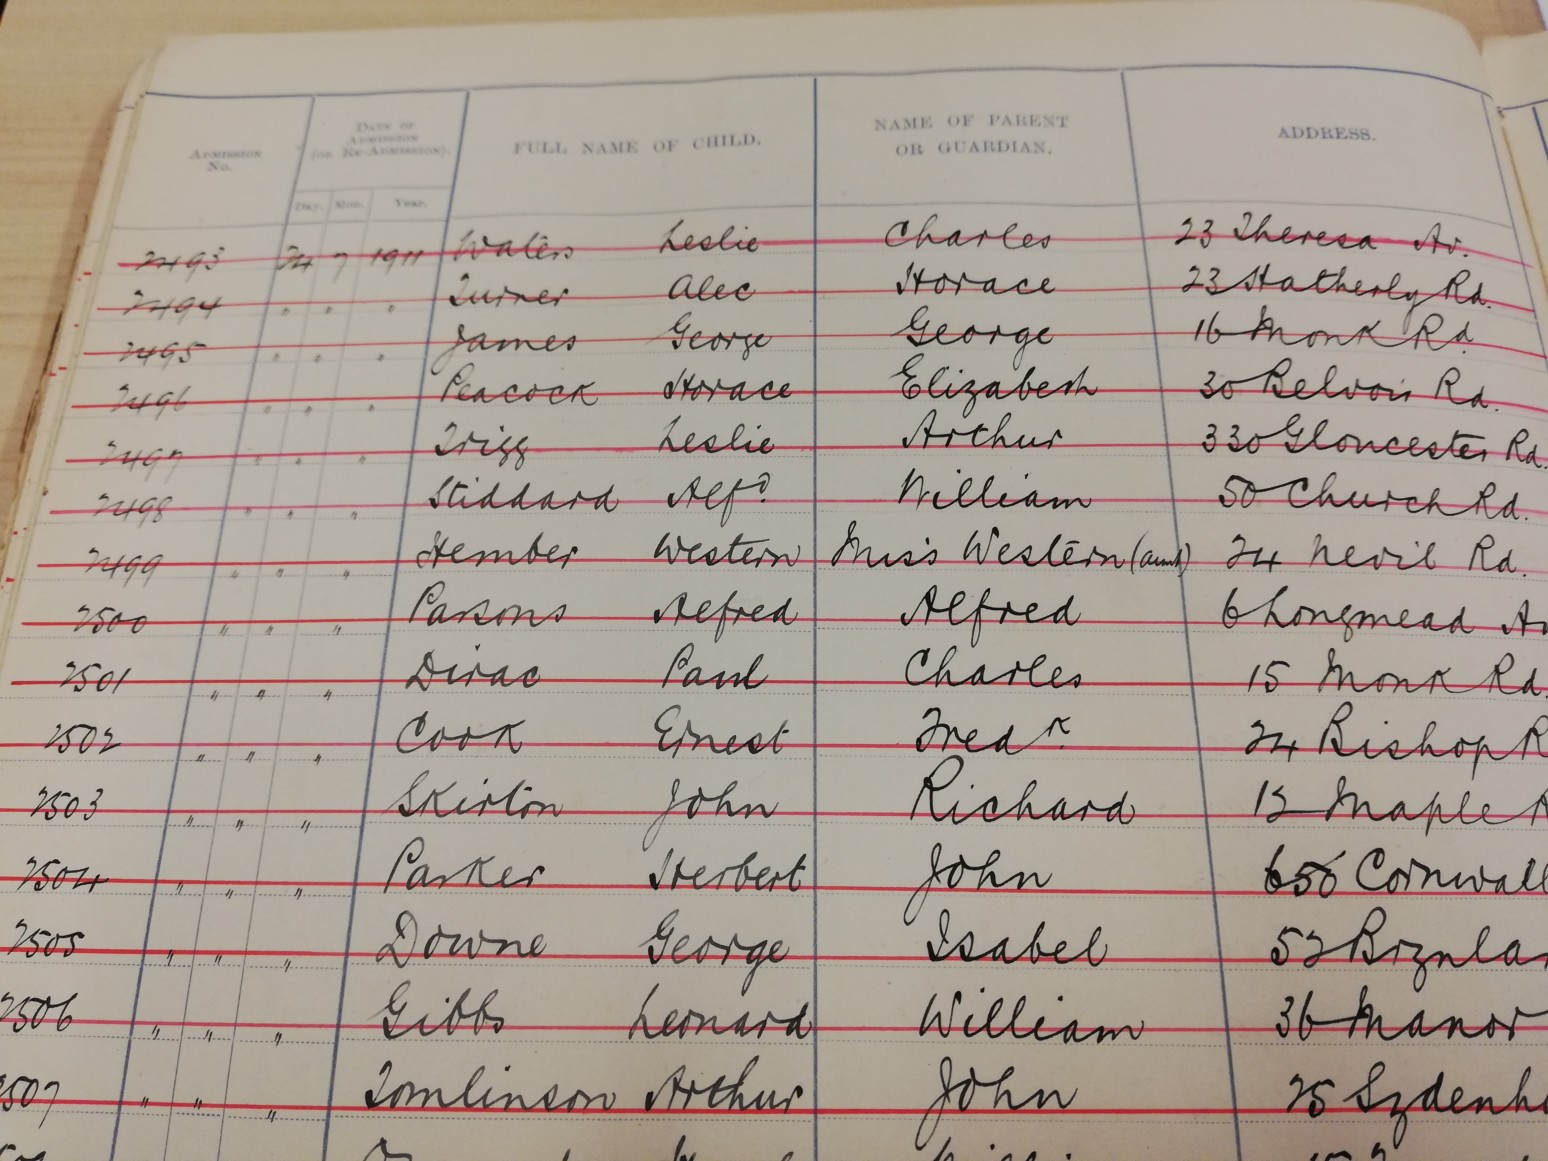 ADMISSION No. DATE OF ADMISSION (OR RE-ADMISSION). FULL NAME OF CHILD. NAME OF PARENT OR GUARDIAN. ADDRESS.
Day. Mon. Year.
2493 24 7 1911 Waters Leslie Charles 23 Theresa Av.
2494 " " " Turner Alec Horace 23 Hatherly Rd.
2495 " " " James George George 16 Monk Rd.
2496 " " " Peacock Horace Elizabeth 30 Belvoir Rd.
2497 " " " Trigg Leslie Arthur 330 Gloucester Rd.
2498 " " " Stiddard Alfd William 50 Church Rd.
2499 " " " Hember Western Miss Western (aunt) 24 Nevil Rd.
2500 " " " Parsons Alfred Alfred 6 Longmead Av
2501 " " " Dirac Paul Charles 15 Monk Rd.
2502 " " " Cook Ernest Fredk. 24 Bishop R
2503 " " " Skirton John Richard Maple
2504 " " " Parker Herbert John Cornwall
2505 " " " Downe George Isabel 52
2506 " " " Gibbs Leonard William 36 Manor
2507 " " " Tomlinson Arthur John 25 Sydenh